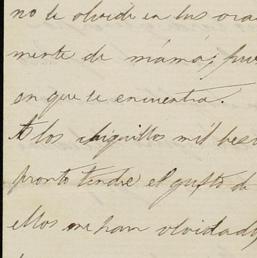 no te olvide en tus ora
mente de mamá; pues
en que se encuentra.
A los chiquillos mil beso
pronto tendré el gusto de
ellos me han olvidado,